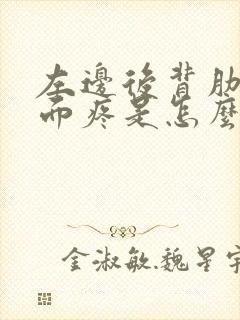 左邊後背肋
而疼是怎麼
金淑敏魏星宇